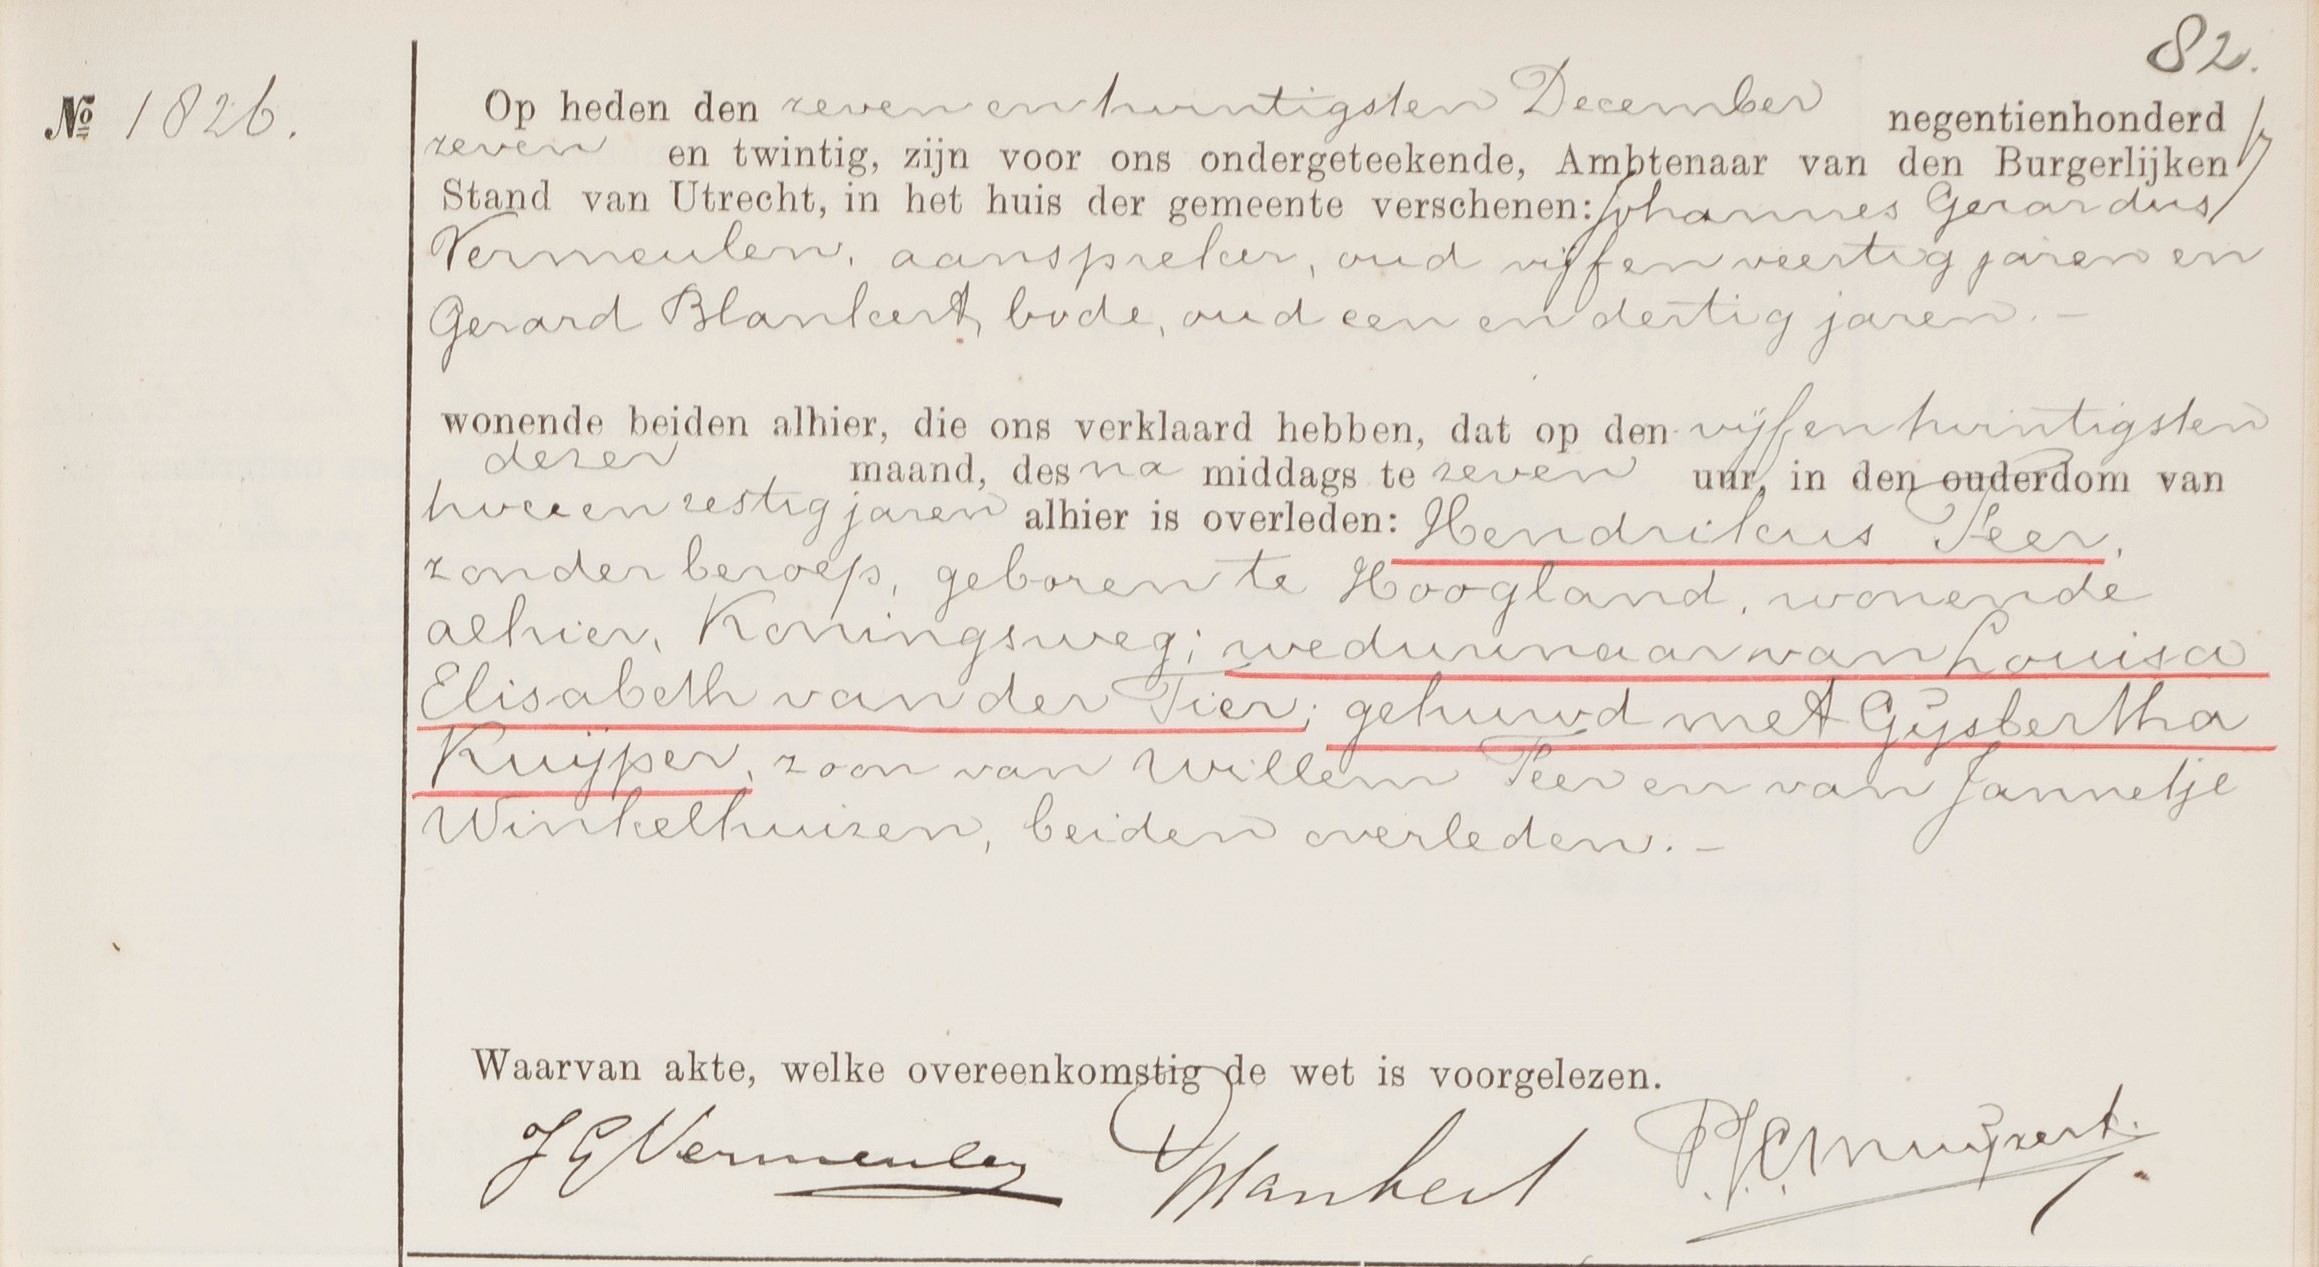 82.
№ 1826.
Op heden den zevenentwintigsten December negentienhonderd
zeven en twintig, zijn voor ons ondergeteekende, Ambtenaar van den Burgerlijken
Stand van Utrecht, in het huis der gemeente verschenen: Johannes Gerardus
Vermeulen, aanspreker, oud vijfenveertig jaren en
Gerard Blankert, bode, oud eenendertig jaren. —
wonende beiden alhier, die ons verklaard hebben, dat op den vijfentwintigsten
dezer maand, des namiddags te zeven uur, in den ouderdom van
tweeenzestig jaren alhier is overleden: Hendrikus Teer,
zonder beroep, geboren te Hoogland, wonende
alhier, Koningsweg; weduwnaar van Louisa
Elisabeth van der Tier; gehuwd met Gijsbertha
Kuijper, zoon van Willem Teer en van Jannetje
Winkelhuizen, beiden overleden. —
Waarvan akte, welke overeenkomstig de wet is voorgelezen.
J G Vermeulen Blankert